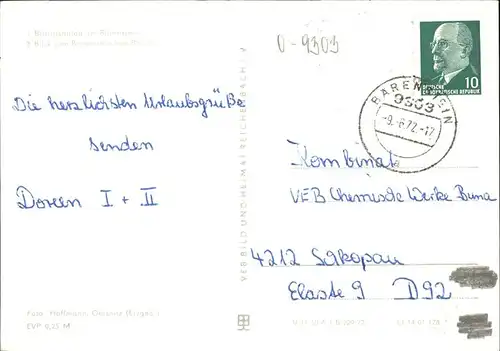 0-9303
10
DEUTSCHE
DEMOKRATISCHE REPUBLIK
BÄRENSTEIN
9303
-9.-6.72.-17
Die herzlichsten Urlaubsgrüße
senden
Doreen I + II
Kombinat
VEB Chemische Werke Buna
4212 Schkopau
Elaste 9 D92
VEB BILD UND HEIMAT REICHENBACH I. V
Foto: Hoffmann,
EVP 0,25 M